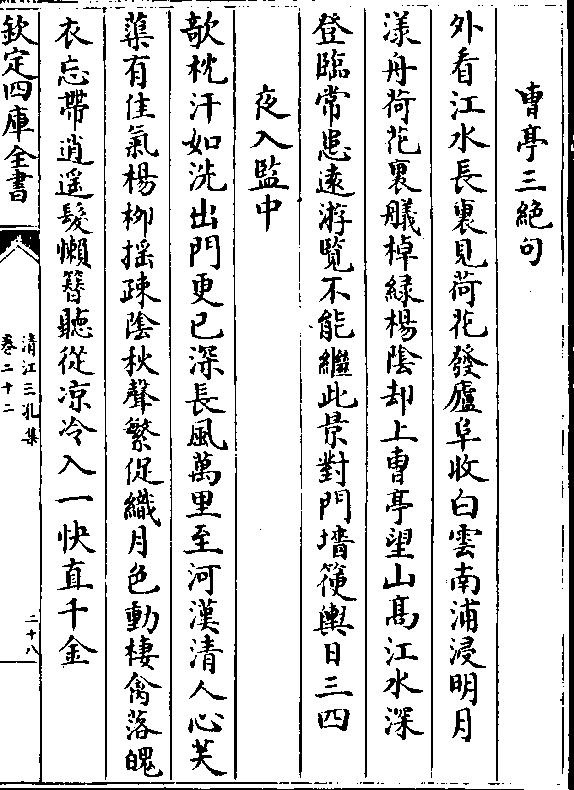 曹亭三絶句
外看江水長裏見荷花發廬阜收白雲南浦浸明月
漾舟荷花裏艤棹緑楊陰却上曹亭望山髙江水深
登臨常患遠游覽不能繼此景對門墻篼輿日三四
夜入監中
欹枕汗如洗出門更已深長風萬里至河漢清人心芙
蕖有佳氣楊栁揺疎陰秋聲繁促織月色動棲禽落魄
衣忘帶逍遥髮懶簪聽從凉冷入一快直千金
欽定四庫全書
清江三孔集
卷二十二
二十八